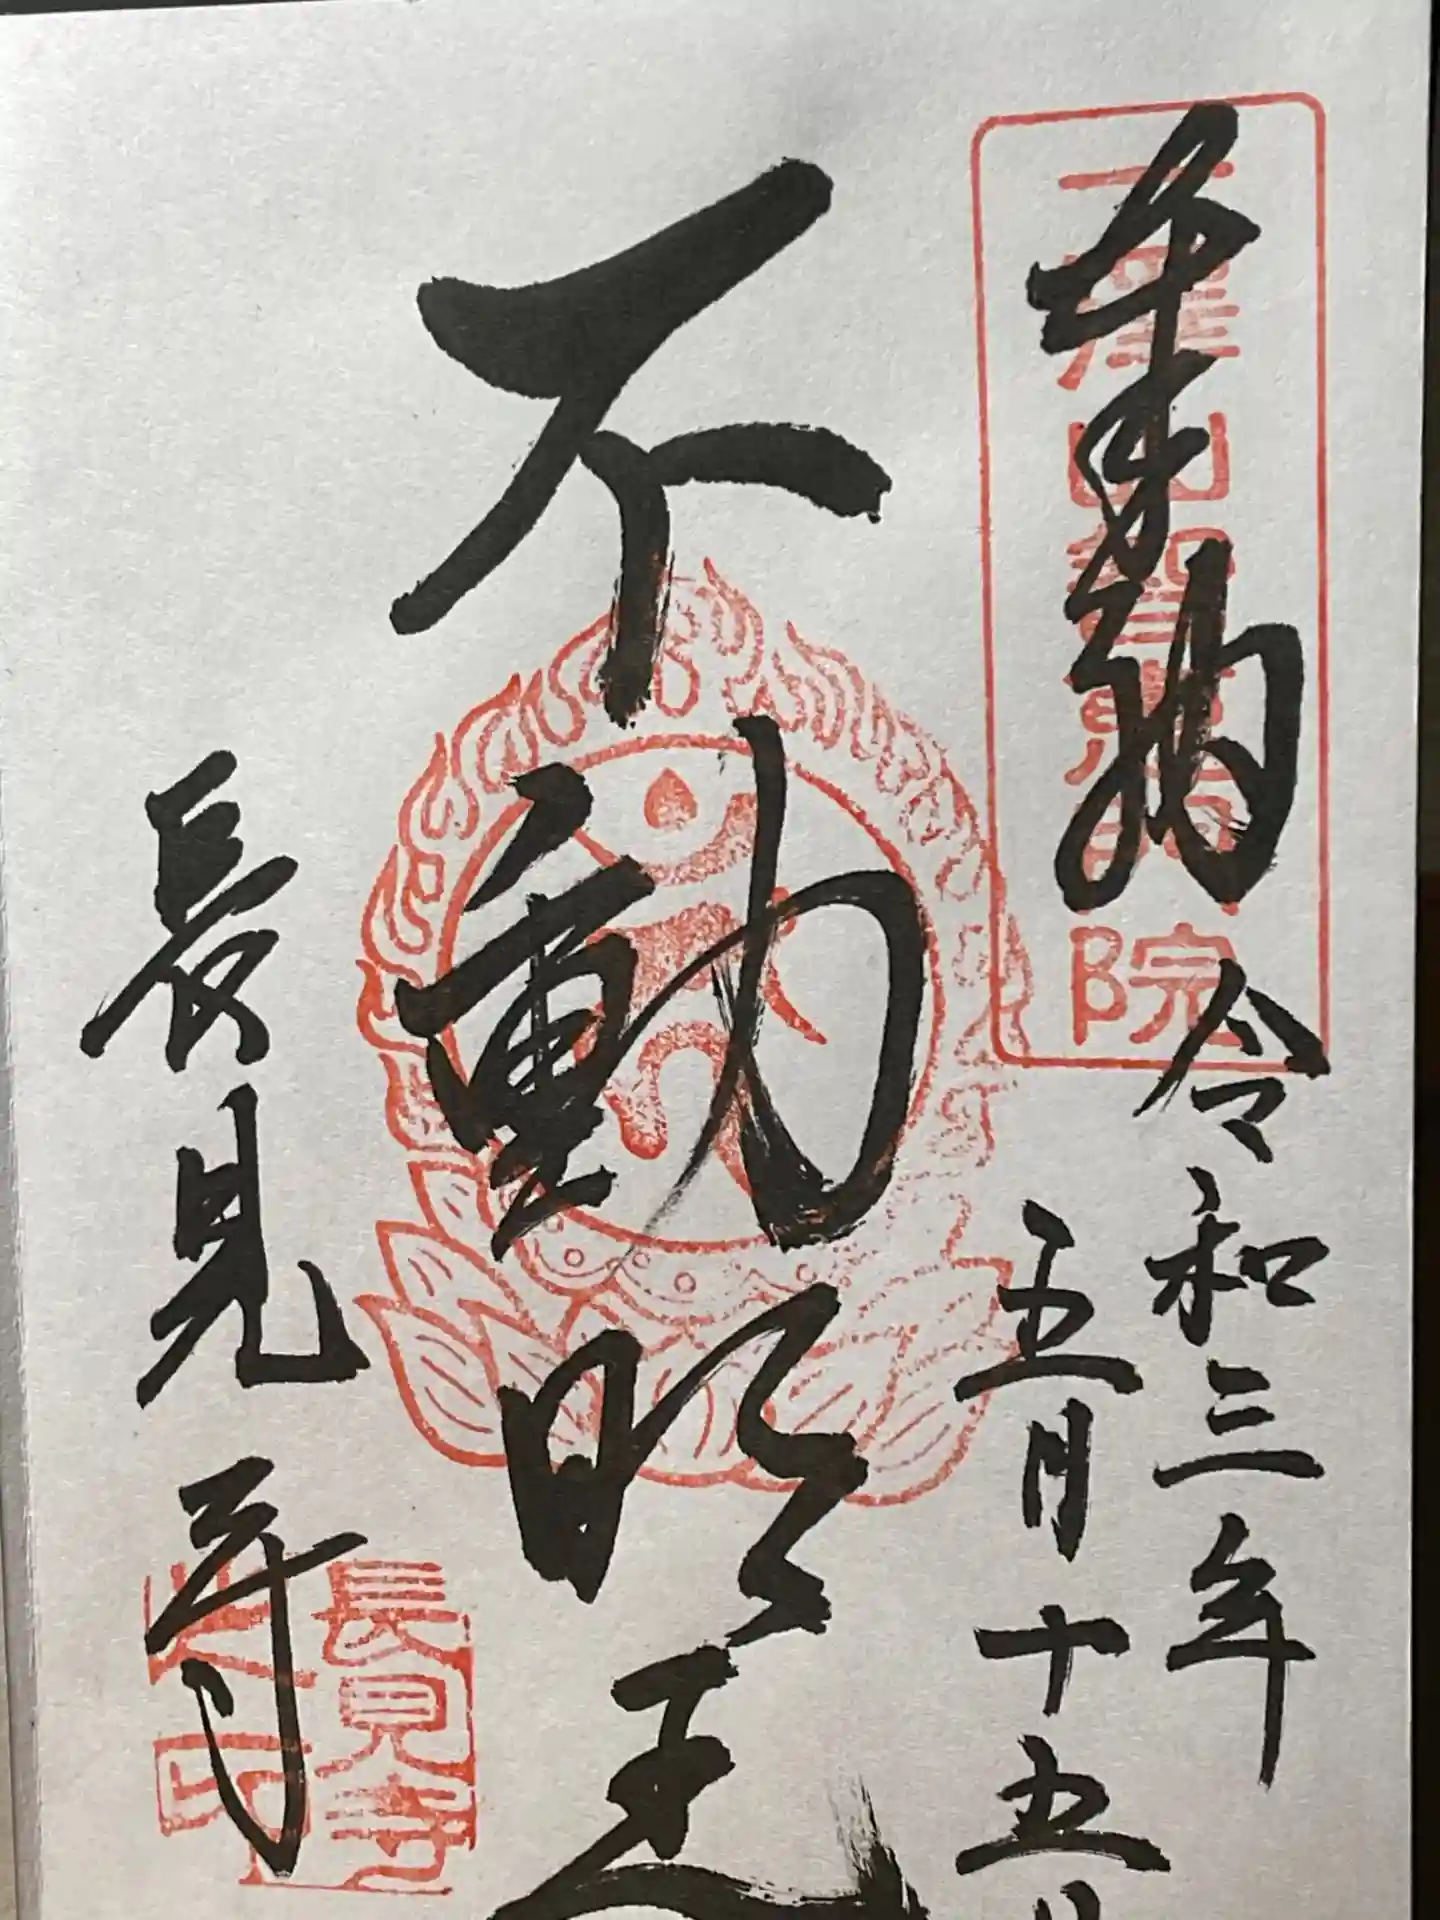 奉納
令和三年
五月十五日
不動明王
長見寺
長見寺
之印